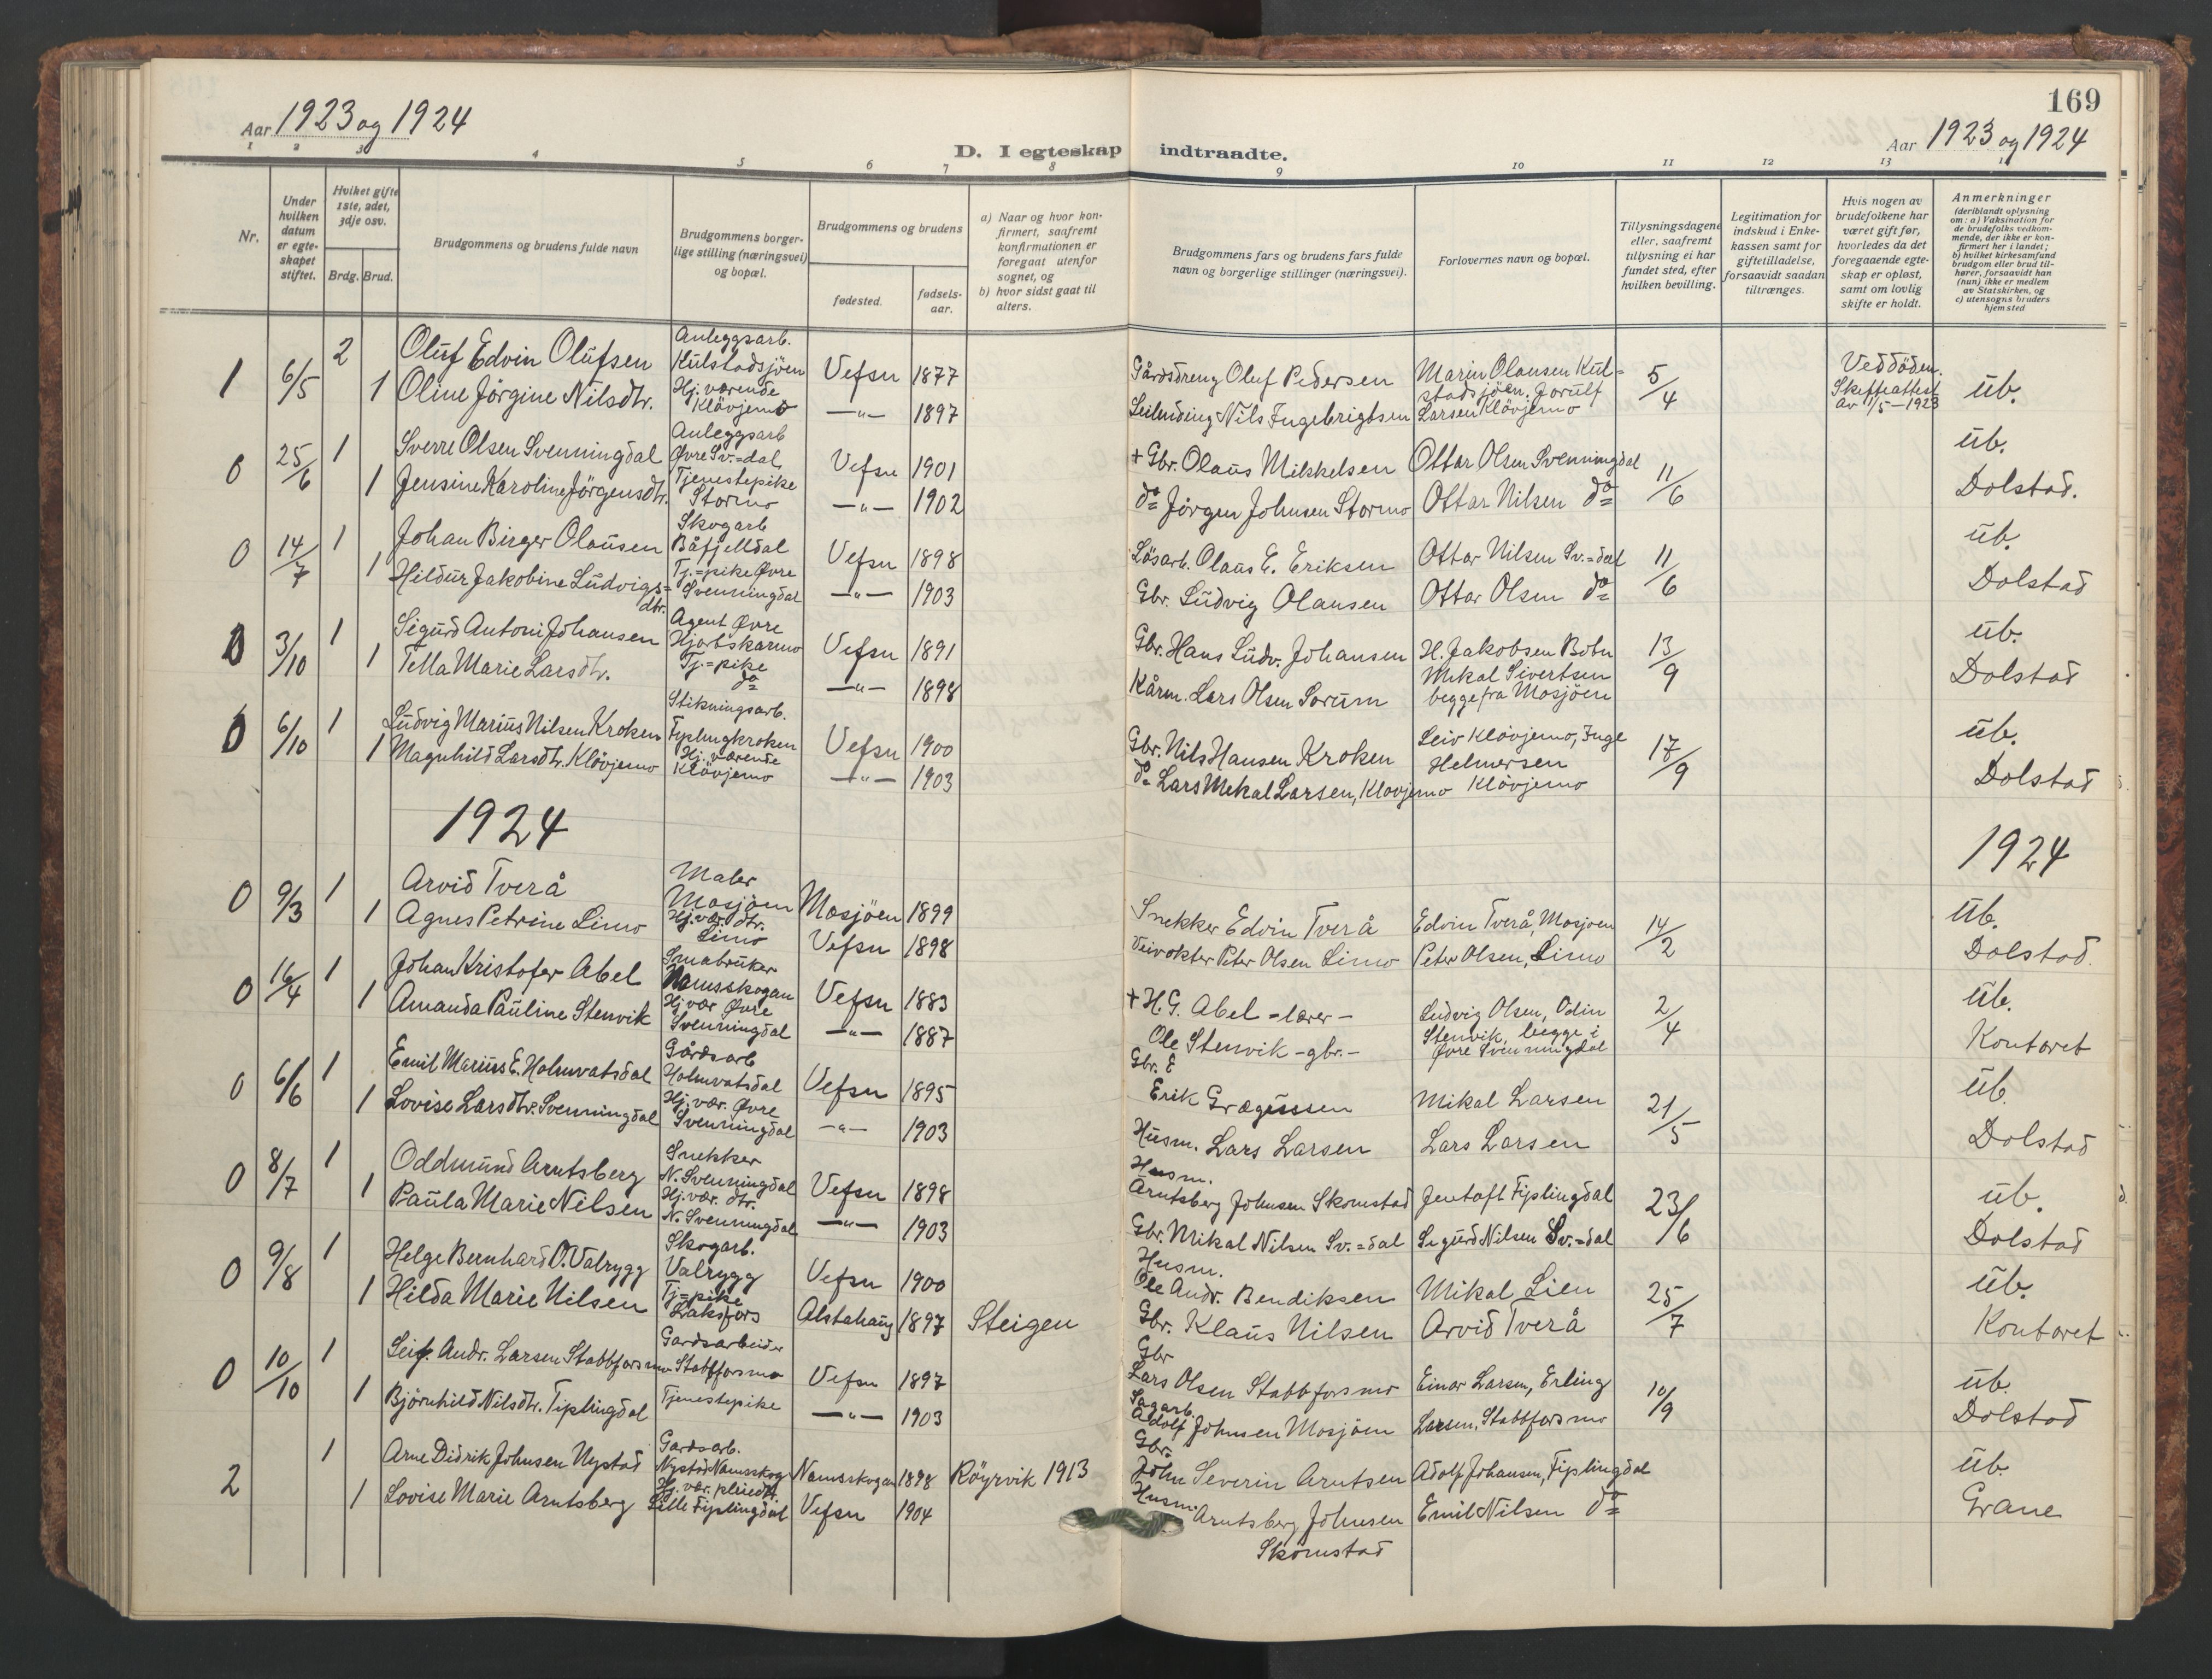 169
Aar 1923 og 1924
Aar 1923 og 1924
D. I egteskap indtraadte.
1 2 3 4 5 6 7 8 9 10 11 12 13 14
Nr.
Under hvilken datum er egteskapet stiftet.
Hvilket gifte 1ste, 2det, 3dje osv.
Brdg. Brud.
Brudgommens og brudens fulde navn
Brudgommens borgerlige stilling (næringsvei) og bopæl.
Brudgommens og brudens
fødested.
fødselsaar.
a) Naar og hvor konfirmert, saafremt konfirmationen er foregaat utenfor sognet, og
b) hvor sidst gaat til alters.
Brudgommens fars og brudens fars fulde navn og borgerlige stillinger (næringsvei).
Forlovernes navn og bopæl.
Tillysningsdagene eller, saafremt tillysning ei har fundet sted, efter hvilken bevilling.
Legitimation for indskud i Enkekassen samt for giftetilladelse, forsaavidt saadan tiltrænges.
Hvis nogen av brudefolkene har været gift før, hvorledes da det foregaaende egteskap er opløst, samt om lovlig skifte er holdt.
Anmerkninger (deriblandt oplysning om: a) Vaksination for de brudefolks vedkommende, der ikke er konfirmert her i landet; b) hvilket kirkesamfund brudgom eller brud tilhører, forsaavidt han (hun) ikke er medlem av Statskirken, og c) utensogns bruders hjemsted
1 6/5 2 Oluf Edvin Olufsen Anleggsarb. Kulstadsjöen Vefsn 1877 Gårdsdreng Oluf Pedersen Marin Olausen Kulstadsjöen. Jorulf 5/4 Ved döden. Skifteattest av 1/5-1923 üb.
1 Oline Jörgine Nilsdtr. Hj. værende Klövjemo -"- 1897 Leilending Nils Ingebrigtsen Larsen Klövjemo
0 25/6 1 Sverre Olsen Svenningdal Anleggsarb Øvre Sv.=dal Vefsn 1901 + Gbr. Olaus Mikkelsen Ottar Olsen Svenningdal 11/6 üb.
1 Jensine Karoline Jörgensdtr. Tjenestepike Stormo -"- 1902 do Jörgen Johnsen Stormo Ottar Nilsen do Dolstad.
0 14/7 1 Johan Birger Olausen Skogarb Båfjelldal Vefsn 1898 Lösarb. Olaus E. Eriksen Ottar Nilsen Sv.=dal 11/6 üb.
1 Hildur Jakobine Ludvigs=dtr. Tj.=pike Øvre Svenningdal -"- 1903 Gbr. Ludvig Olausen Ottar Olsen do Dolstad
0 3/10 1 Sigurd Antoni Johansen Agent Øvre Hjortskarmo Vefsn 1891 Gbr. Hans Ludv. Johansen H. Jakobsen Botn 13/9 üb.
1 Tella Marie Larsdtr. Tj.=pike do -"- 1898 Kårm. Lars Olsen Sorum Mikal Sivertsen begge fra Mosjöen Dolstad
0 6/10 1 Ludvig Marius Nilsen Kroken Stikningsarb. Fiplingkroken Vefsn 1900 Gbr. Nils Hansen Kroken Leiv Klövjemo, Inge Helmersen 17/9 üb.
1 Magnhild Larsdtr. Klövjemo Hj. værende Klövjemo -"- 1903 do Lars Mekal Larsen, Klovjemo Klövjemo Dolstad
1924
1924
0 9/3 1 Arvid Tverå Maler Mosjöen Mosjöen 1899 Snekker Edvin Tverå Edvin Tverå, Mosjoen 14/2 üb.
1 Agnes Petrine Limo Hj. vær. dtr. Limo Vefsn 1898 Veivokter Peter Olsen Limo Peter Olsen, Limo Dolstad.
0 16/4 1 Johan Kristofer Abel Småbruker Namsskogan Vefsn 1883 + H. G. Abel - lærer - Ludvig Olsen, Odin 2/4 üb.
1 Amanda Pauline Stenvik Hj. vær Øvre Svenningdal -"- 1887 Ole Stenvik - gbr. - Stenvik, begge i Øvre Svenningdal Kontoret
0 6/6 1 Emil Marius E. Holmvatsdal Gårdsarb Holmvatsdal Vefsn 1895 Gbr. E Erik Grægussen Mikal Larsen 21/5 üb.
1 Lovise Larsdtr. Svenningdal Hj. vær. Øvre Svenningdal -"- 1903 Husm. Lars Larsen Lars Larsen Dolstad
0 8/7 1 Oddmund Arntsberg Snekker N. Svenningdal Vefsn 1898 Husm. Arntsberg Johnsen Skomstad Jentoft Fiplingdal 23/6 üb.
1 Paula Marie Nilsen Hj. vær. dtr. N. Svenningdal -"- 1903 Gbr. Mikal Nilsen Sv.=dal Sigurd Nilsen Sv.=dal Dolstad
0 9/8 1 Helge Bernhard O. Valrygg Skogarb. Valrygg Vefsn 1900 Husm. Ole Andr. Bendiksen Mikal Lien 25/7 üb.
1 Hilda Marie Nilsen Tj=pike Laksfors Alstahaug 1897 Steigen Gbr. Klaus Nilsen Arvid Tverå Kontoret
0 10/10 1 Leif. Andr. Larsen Stabbforsmo Gardsarbeider Stabbforsmo Vefsn 1897 Gbr Lars Olsen Stabbforsmo Einar Larsen, Erling 10/9 üb.
1 Björnhild Nilsdtr. Fiplingdal Tjenestepike -"- 1903 Sagarb. Adolf Johnsen Mosjöen Larsen, Stabbforsmo Dolstad
2 1 Arne Didrik Johnsen Nystad Gardsarb. Nystad Namsskog Namsskogan 1898 Röyrvik 1913 Gbr. John Severin Arntsen Adolf Johansen, Fiplingdal üb.
1 Lovise Marie Arntsberg Hj. vær. pleiedt. Lille Fiplingdal Vefsn 1904 Husm. Arntsberg Johnsen Skomstad Emil Nilsen do Grane